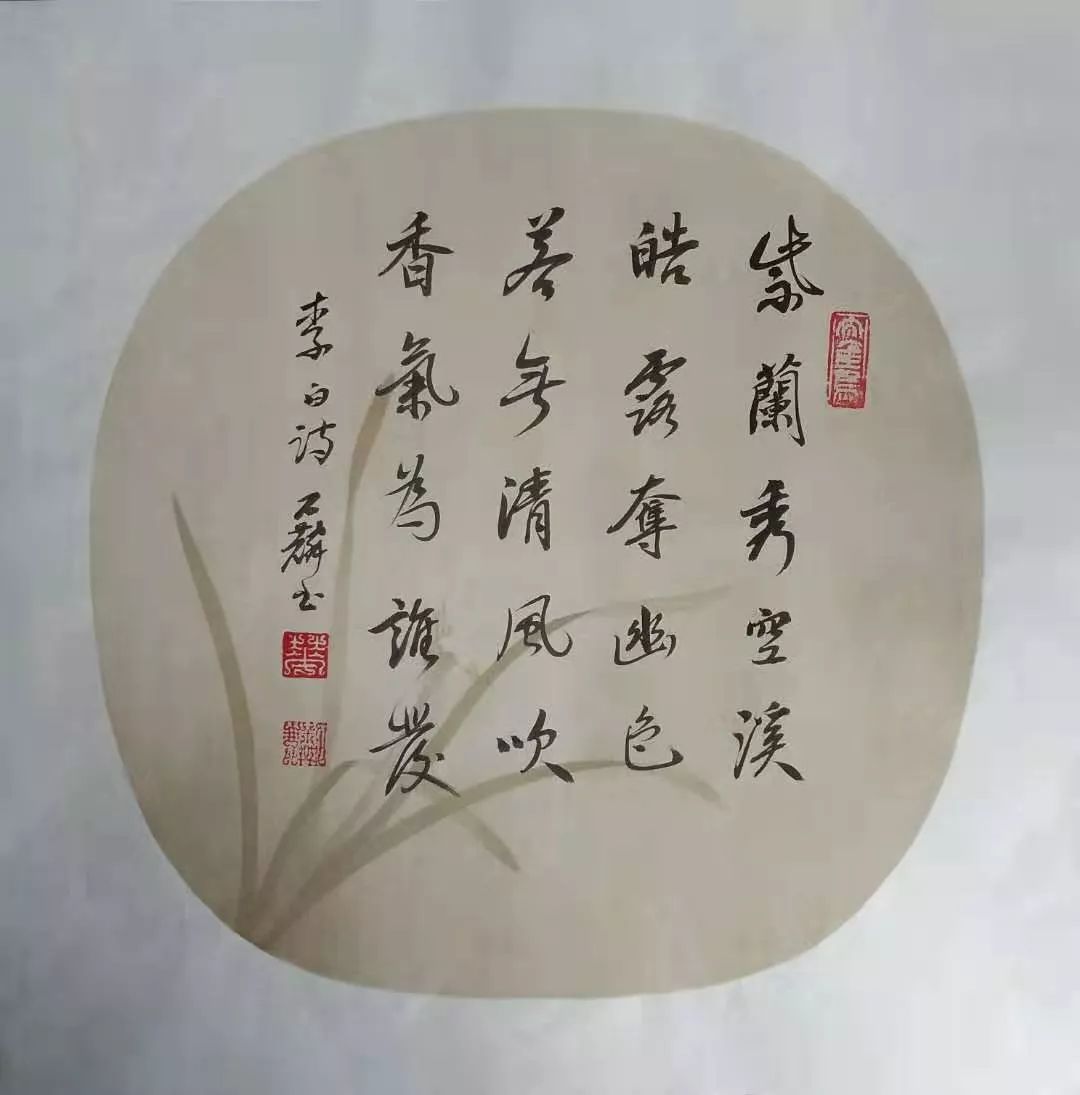 紫蘭秀空溪
皓露奪幽色
若無清風吹
香氣為誰發
李白詩 石麟书